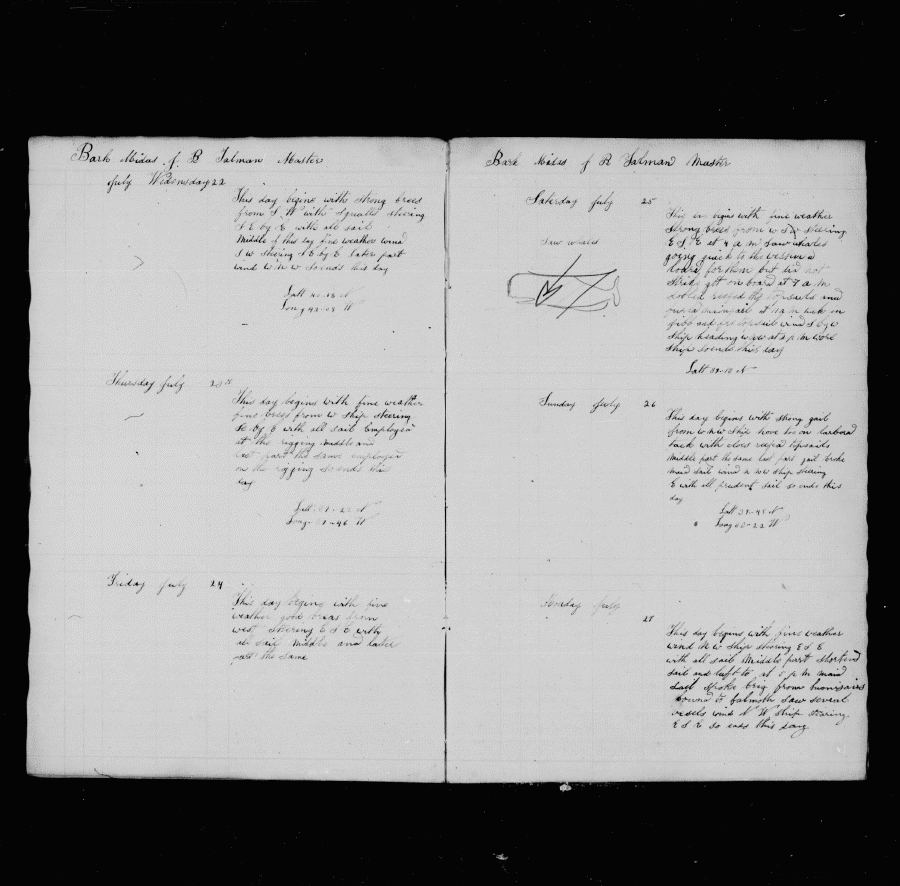 Bark Midas J. B Talman Master
July Wedensday 22
This day begins with strong brees
from S W with Squalls steering
S E by E with all sail
Middle of this day fine weather wind
S W steering S E by E later part
wind W N W So ends this day
Latt 41-18 N
Long 42-04 W
Thursday July 23
This day begins with fine weather
fine brees from W Ship steering
by E with all sail Employed
at the rigging middle and
last part the same employed
on the rigging So ends this
day
Latt 22 N
Long 46 W
Friday July 24
This day begins with fine
weather good breas from
west Steering E S E with
all sail middle and later
part the same
Bark Midas J B Talman Master
Saturday July 25
Saw whales
This begins with fine weather
strong brees from W S W steering
E S E at 4 a m Saw whales
going quick to the
board for them but did not
Strike got on board at 9 a m
reefed the topsails and
mainsail at 11 a m
jibb and topsail wind S by W
Ship heading at 2 p m wore
Ship So ends this day
Latt 39-18 N
Sunday July 26
This day begins with strong gail
from W N W Ship hove too on larbord
tack with close reefed topsails
Middle part the same last part gail broke
maid sail wind N W Ship steering
E with all prudent sail so ends this
day
Latt 39-48 N
Long 22 W
Monday July
27
This day begins with fine weather
wind N W Ship steering E S E
with all sail Middle part Shortend
Sail and luft to at p m maid
Sail Spoke brig from
bound to falmoth Saw several
vesels wind N W Ship stearing
E S E So ends this day